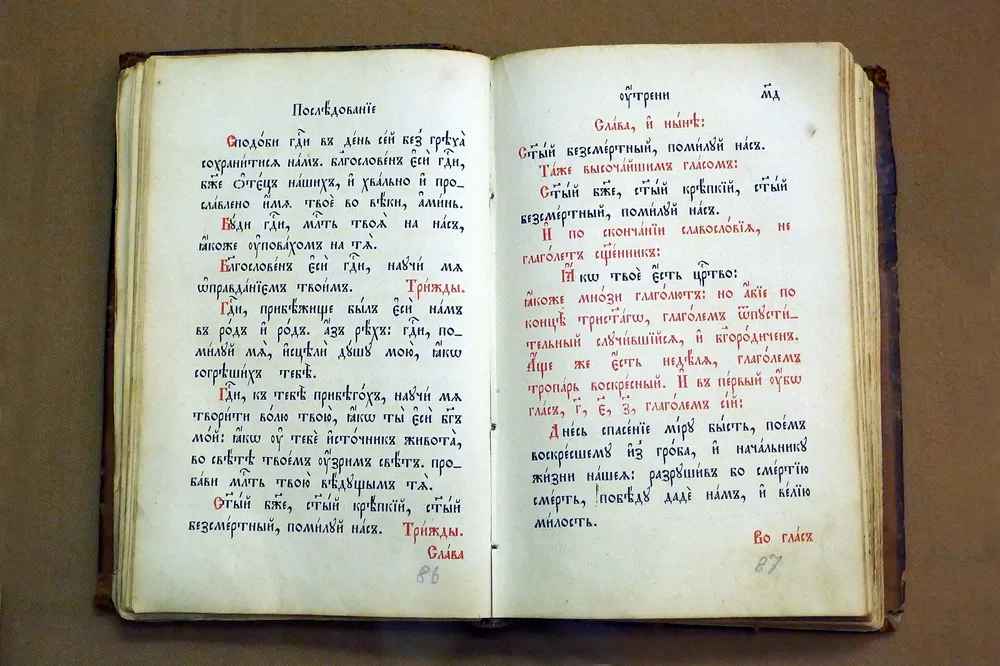 Послѣ́дованїе
Сподо́би гдⷭ҇и в̾ де́нь се́й без̾ грѣха̀
сохрани́тисѧ на́мъ. блгⷭ҇ове́нъ є҆сѝ гдⷭ҇и,
бж҃е ѻ҆тє́цъ на́шихъ, и҆ хва́льно и҆ про_
сла́влено и҆́мѧ твоѐ во вѣ́ки, а҆ми́нь.
Бу́ди гдⷭ҇и, млⷭ҇ть твоѧ̀ на на́съ,
ꙗ҆́коже ᲂу҆пова́хомъ на тѧ̀.
Блгⷭ҇ове́нъ є҆сѝ гдⷭ҇и, научи́ мѧ
ѡ҆правда́нїємъ твои́мъ. Три́жды.
Гдⷭ҇и, прибѣ́жище бы́лъ є҆сѝ на́мъ
в̾ ро́дъ и҆ ро́дъ. а҆́зъ рѣ́хъ: гдⷭ҇и, по_
ми́луй мѧ̀, и҆сцѣлѝ ду́шу мою̀, ꙗ҆́кѡ
согрѣши́хъ тебѣ̀.
Гдⷭ҇и, къ тебѣ̀ прибѣго́хъ, научи́ мѧ
твори́ти во́лю твою̀, ꙗ҆́кѡ ты̀ є҆сѝ бг҃ъ
мо́й: ꙗ҆́кѡ ᲂу҆ тебѐ и҆сто́чникъ живота̀,
во свѣ́тѣ твое́мъ ᲂу҆́зримъ свѣ́тъ. про_
ба́ви млⷭ҇ть твою̀ вѣ́дущымъ тѧ̀.
Ст҃ы́й бж҃е, ст҃ы́й крѣ́пкїй, ст҃ы́й
безсме́ртный, поми́луй на́съ. Три́жды.
Сла́ва
86
ᲂу҆́трени м҃д
Сла́ва, и҆ ны́нѣ:
Ст҃ы́й безсме́ртный, поми́луй на́съ.
Та́же высоча́йшимъ гла́сомъ:
Ст҃ы́й бж҃е, ст҃ы́й крѣ́пкїй, ст҃ы́й
безсме́ртный, поми́луй на́съ.
И҆ по сконча́нїи славосло́вїѧ, не
глаго́летъ сщ҃е́нникъ:
Ꙗ҆́кѡ твоѐ є҆́сть црⷭ҇тво:
ꙗ҆́коже мно́зи глаго́лютъ: но а҆́бїе по
концѣ̀ трист҃а́гѡ, глаго́лемъ ѿпусти́_
тельный случи́вшїйсѧ, и҆ бг҃оро́диченъ.
А҆́ще же є҆́сть недѣ́лѧ, глаго́лемъ
тропа́рь воскре́сный. И҆ в̾ пе́рвый ᲂу҆́бѡ
гла́съ, г҃, є҃, з҃, глаго́лемъ сі́й:
Дне́сь спасе́нїе мі́ру бы́сть, пое́мъ
воскре́сшему и҆з̾ гро́ба, и҆ нача́льнику
жи́зни на́шеѧ: разруши́въ бо сме́ртїю
сме́рть, побѣ́ду дадѐ на́мъ, и҆ ве́лїю
ми́лость.
Во гла́съ
87